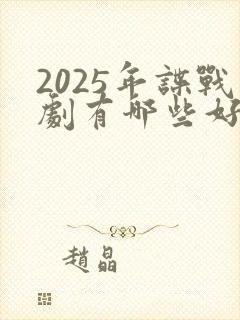 2025年諜戰
劇有哪些好
趙晶